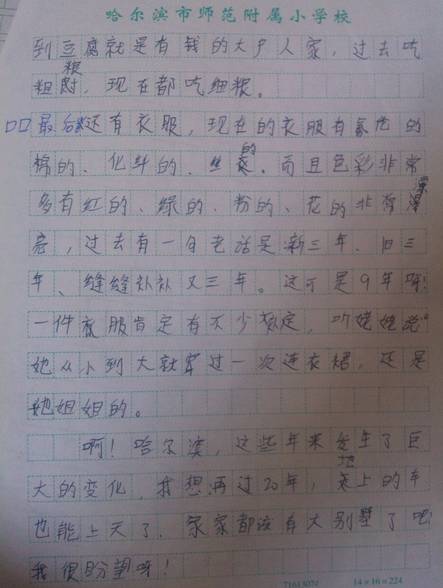 哈尔滨市师范附属小学校
到豆腐就是有钱的大户人家，过去吃
粗粮，现在都吃细粮。
最后还有衣服，现在的衣服有氯伦的
棉的、化纤的、丝的。而且色彩非常
多有红的、绿的、粉的、花的非常漂
亮，过去有一句老话是新三年、旧三
年、缝缝补补又三年。这可是9年呀！
一件衣服肯定有不少补定，听姥姥说
她从小到大就穿过一次连衣裙，还是
她姐姐的。
啊！哈尔滨，这些年来发生了巨
大的变化，我想再过20年，地上的车
也能上天了，家家都该有大别墅了吧
我很盼望呀！
14×16=224